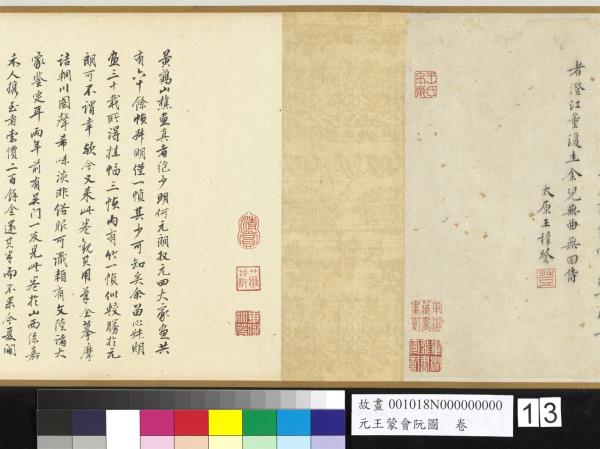 者澄江董復生余兒無曲無回侍
太原王穉登
黃鶴山樵畫真者絕少明何元朗收元四大家畫共
有六十餘幀叔明僅一幀其少可知矣余留心叔明
畫三十載所得挂幅三幀內有竹一幀似較勝於元
朗可不謂幸歟今又來此卷觀其用筆全摹摩
詰輞川圖聲希味淡非俗眼可識賴有文陸諸大
家鑒定耳兩年前有吳門一友見此卷於山西係嘉
禾人攜至者索價二百餘金還其半而不果今夏間
故畫 001018N000000000
元王蒙會阮圖 卷
13